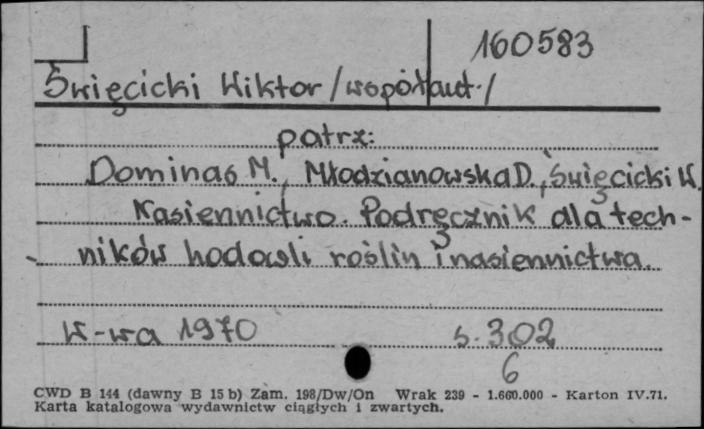 160583
Święcicki Wiktor /współaut./
patrz:
Dominas M., Młodzianowska D., Święcicki W.
Nasiennictwo. Podręcznik dla tech-
ników hodowli roślin i nasiennictwa.
W-wa 1970 s. 302
6
CWD B 144 (dawny B 15 b) Zam. 198/Dw/On Wrak 239 - 1.660.000 - Karton IV.71.
Karta katalogowa wydawnictw ciągłych i zwartych.